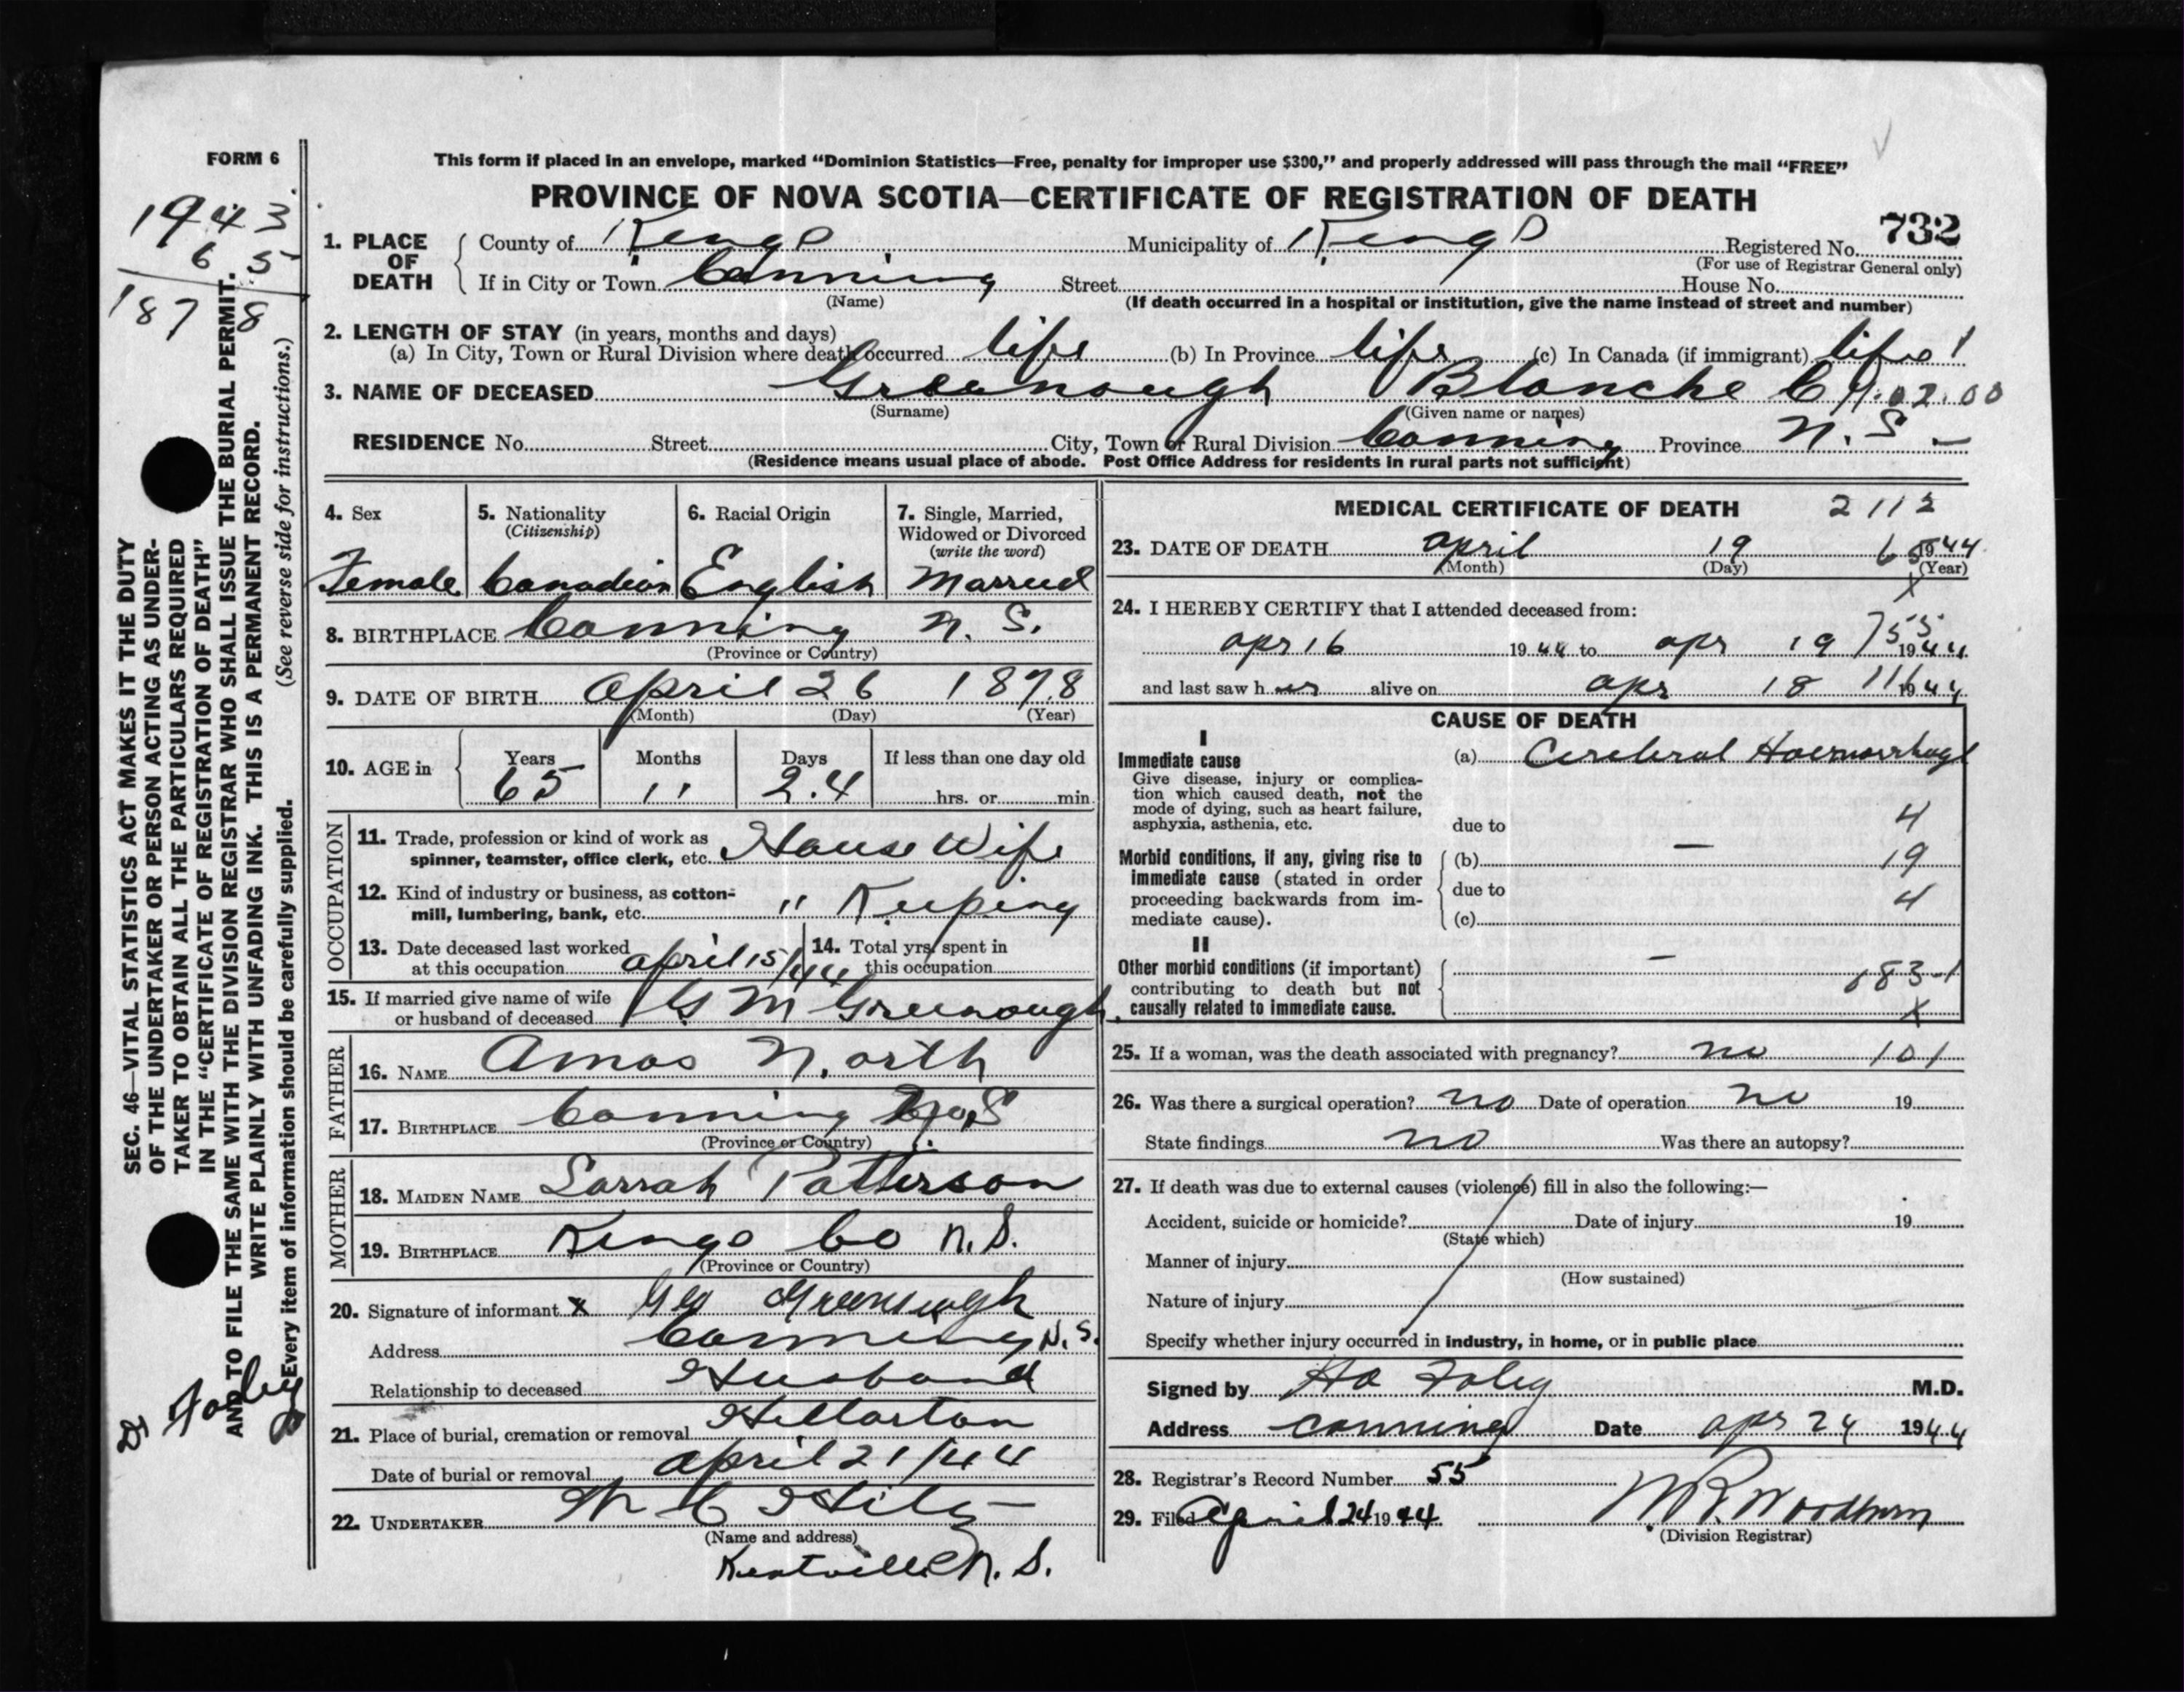 FORM 6
This form if placed in an envelope, marked “Dominion Statistics—Free, penalty for improper use $300,” and properly addressed will pass through the mail “FREE”
PROVINCE OF NOVA SCOTIA—CERTIFICATE OF REGISTRATION OF DEATH
1943
65
1878
732
1. PLACE OF DEATH County of Kings Municipality of Kings Registered No.
(For use of Registrar General only)
If in City or Town Canning Street House No.
(Name) (If death occurred in a hospital or institution, give the name instead of street and number)
2. LENGTH OF STAY (in years, months and days)
(a) In City, Town or Rural Division where death occurred life (b) In Province life (c) In Canada (if immigrant) life 1
3. NAME OF DECEASED Greenough Blanche C 02.00
(Surname) (Given name or names)
RESIDENCE No. Street City, Town or Rural Division Canning Province N. S. —
(Residence means usual place of abode. Post Office Address for residents in rural parts not sufficient)
4. Sex Female
5. Nationality (Citizenship) Canadian
6. Racial Origin English
7. Single, Married, Widowed or Divorced (write the word) Married
8. BIRTHPLACE Canning N. S.
(Province or Country)
9. DATE OF BIRTH April 26 1878
(Month) (Day) (Year)
10. AGE in Years 65 Months 11 Days 24 If less than one day old
hrs. or min.
OCCUPATION
11. Trade, profession or kind of work as
spinner, teamster, office clerk, etc. House Wife
12. Kind of industry or business, as cotton-
mill, lumbering, bank, etc. " Keeping
13. Date deceased last worked
at this occupation April 15/44
14. Total yrs. spent in
this occupation
15. If married give name of wife
or husband of deceased G M Greenough
FATHER
16. NAME Amos North
17. BIRTHPLACE Canning N.S
(Province or Country)
MOTHER
18. MAIDEN NAME Sarrah Patterson
19. BIRTHPLACE Kings Co N.S.
(Province or Country)
20. Signature of informant x Geo Greenough
Address Canning N.S.
Relationship to deceased Husband
21. Place of burial, cremation or removal Hillarton
Date of burial or removal April 21/44
22. UNDERTAKER
(Name and address)
Kentville N. S.
MEDICAL CERTIFICATE OF DEATH 2112
23. DATE OF DEATH April 19 65 1944
(Month) (Day) (Year)
X
24. I HEREBY CERTIFY that I attended deceased from:
Apr 16 1944 to Apr 19 755 1944
and last saw her alive on Apr 18 111 1944
CAUSE OF DEATH
I
Immediate cause
Give disease, injury or complica-
tion which caused death, not the
mode of dying, such as heart failure,
asphyxia, asthenia, etc.
(a) Cerebral Haemorrhage
due to 4
Morbid conditions, if any, giving rise to
immediate cause (stated in order
proceeding backwards from im-
mediate cause).
(b) — 19
due to 4
(c)
II
Other morbid conditions (if important)
contributing to death but not
causally related to immediate cause.
—
183-1
X
25. If a woman, was the death associated with pregnancy? no 101
26. Was there a surgical operation? no Date of operation no 19
State findings no Was there an autopsy?
27. If death was due to external causes (violence) fill in also the following:—
Accident, suicide or homicide? Date of injury 19
(State which)
Manner of injury
(How sustained)
Nature of injury
Specify whether injury occurred in industry, in home, or in public place
Signed by Foley M.D.
Address Canning Date Apr 24 1944
28. Registrar's Record Number 55
29. Filed April 24 1944 W R Woodburn
(Division Registrar)
SEC. 46—VITAL STATISTICS ACT MAKES IT THE DUTY
OF THE UNDERTAKER OR PERSON ACTING AS UNDER-
TAKER TO OBTAIN ALL THE PARTICULARS REQUIRED
IN THE “CERTIFICATE OF REGISTRATION OF DEATH”
AND TO FILE THE SAME WITH THE DIVISION REGISTRAR WHO SHALL ISSUE THE BURIAL PERMIT.
WRITE PLAINLY WITH UNFADING INK. THIS IS A PERMANENT RECORD.
Every item of information should be carefully supplied. (See reverse side for instructions.)
Dr Foley